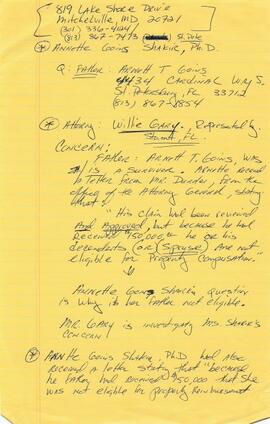 819 Lake Shore Drive
Mitchelville, MD 20721
(301) 336-4124
(813) 867-7473 St. Pete
* Annette Goins Shakir, Ph.D.
Q: Father: Arnett T Goins
4434 Cardinal Way S.
St. Petersburg, FL 33712
(813) 867-1854
* Attorney: Willie Gary. Represented by
Stuart, FL.
Concern:
Father: Arnett T. Goins, was
is a survivor. Arnette received
a letter from Mr. , from the
office of the Attorney General, stating
that:
"His Claim had been reviewed
And Approved, but because he had
received $150,000 he or his
decendents (or) Spouse) Are not
eligible for Property Compensation."
↓
Annette Goins Shakir's question
is why is her Father not eligible.
Mr. Gary is investigating Mrs. Shakir's
concern
* Annette Goins Shakir, PhD had also
received a letter stating that "because
he Father had received $150,000 that she
was not eligible for property Reimbursement